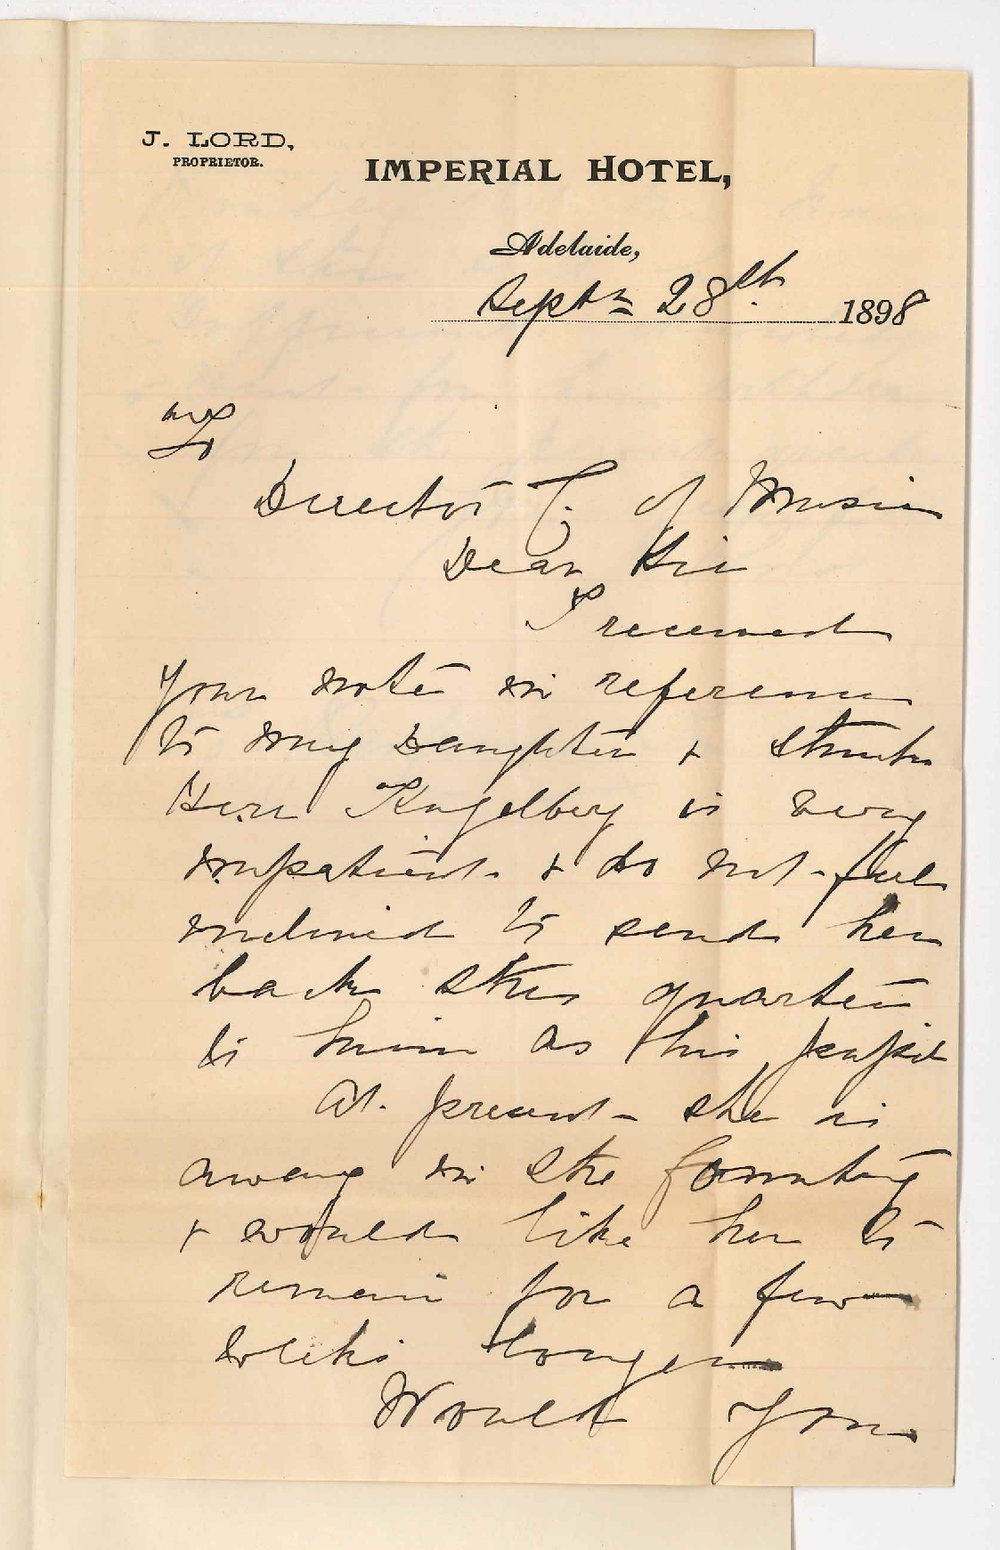 J. LORD,
PROPRIETOR.
IMPERIAL HOTEL,
Adelaide,
Septr 28th 1898
To
Director C. of Music
Dear Sir
I received
your note in reference
to my Daughter &
Herr Kugelberg is very
impatient & do not feel
inclined to send her
back this quarter
to him as his pupil
At present she is
away in the Country
& would like her to
remain for a few
weeks longer
Would you